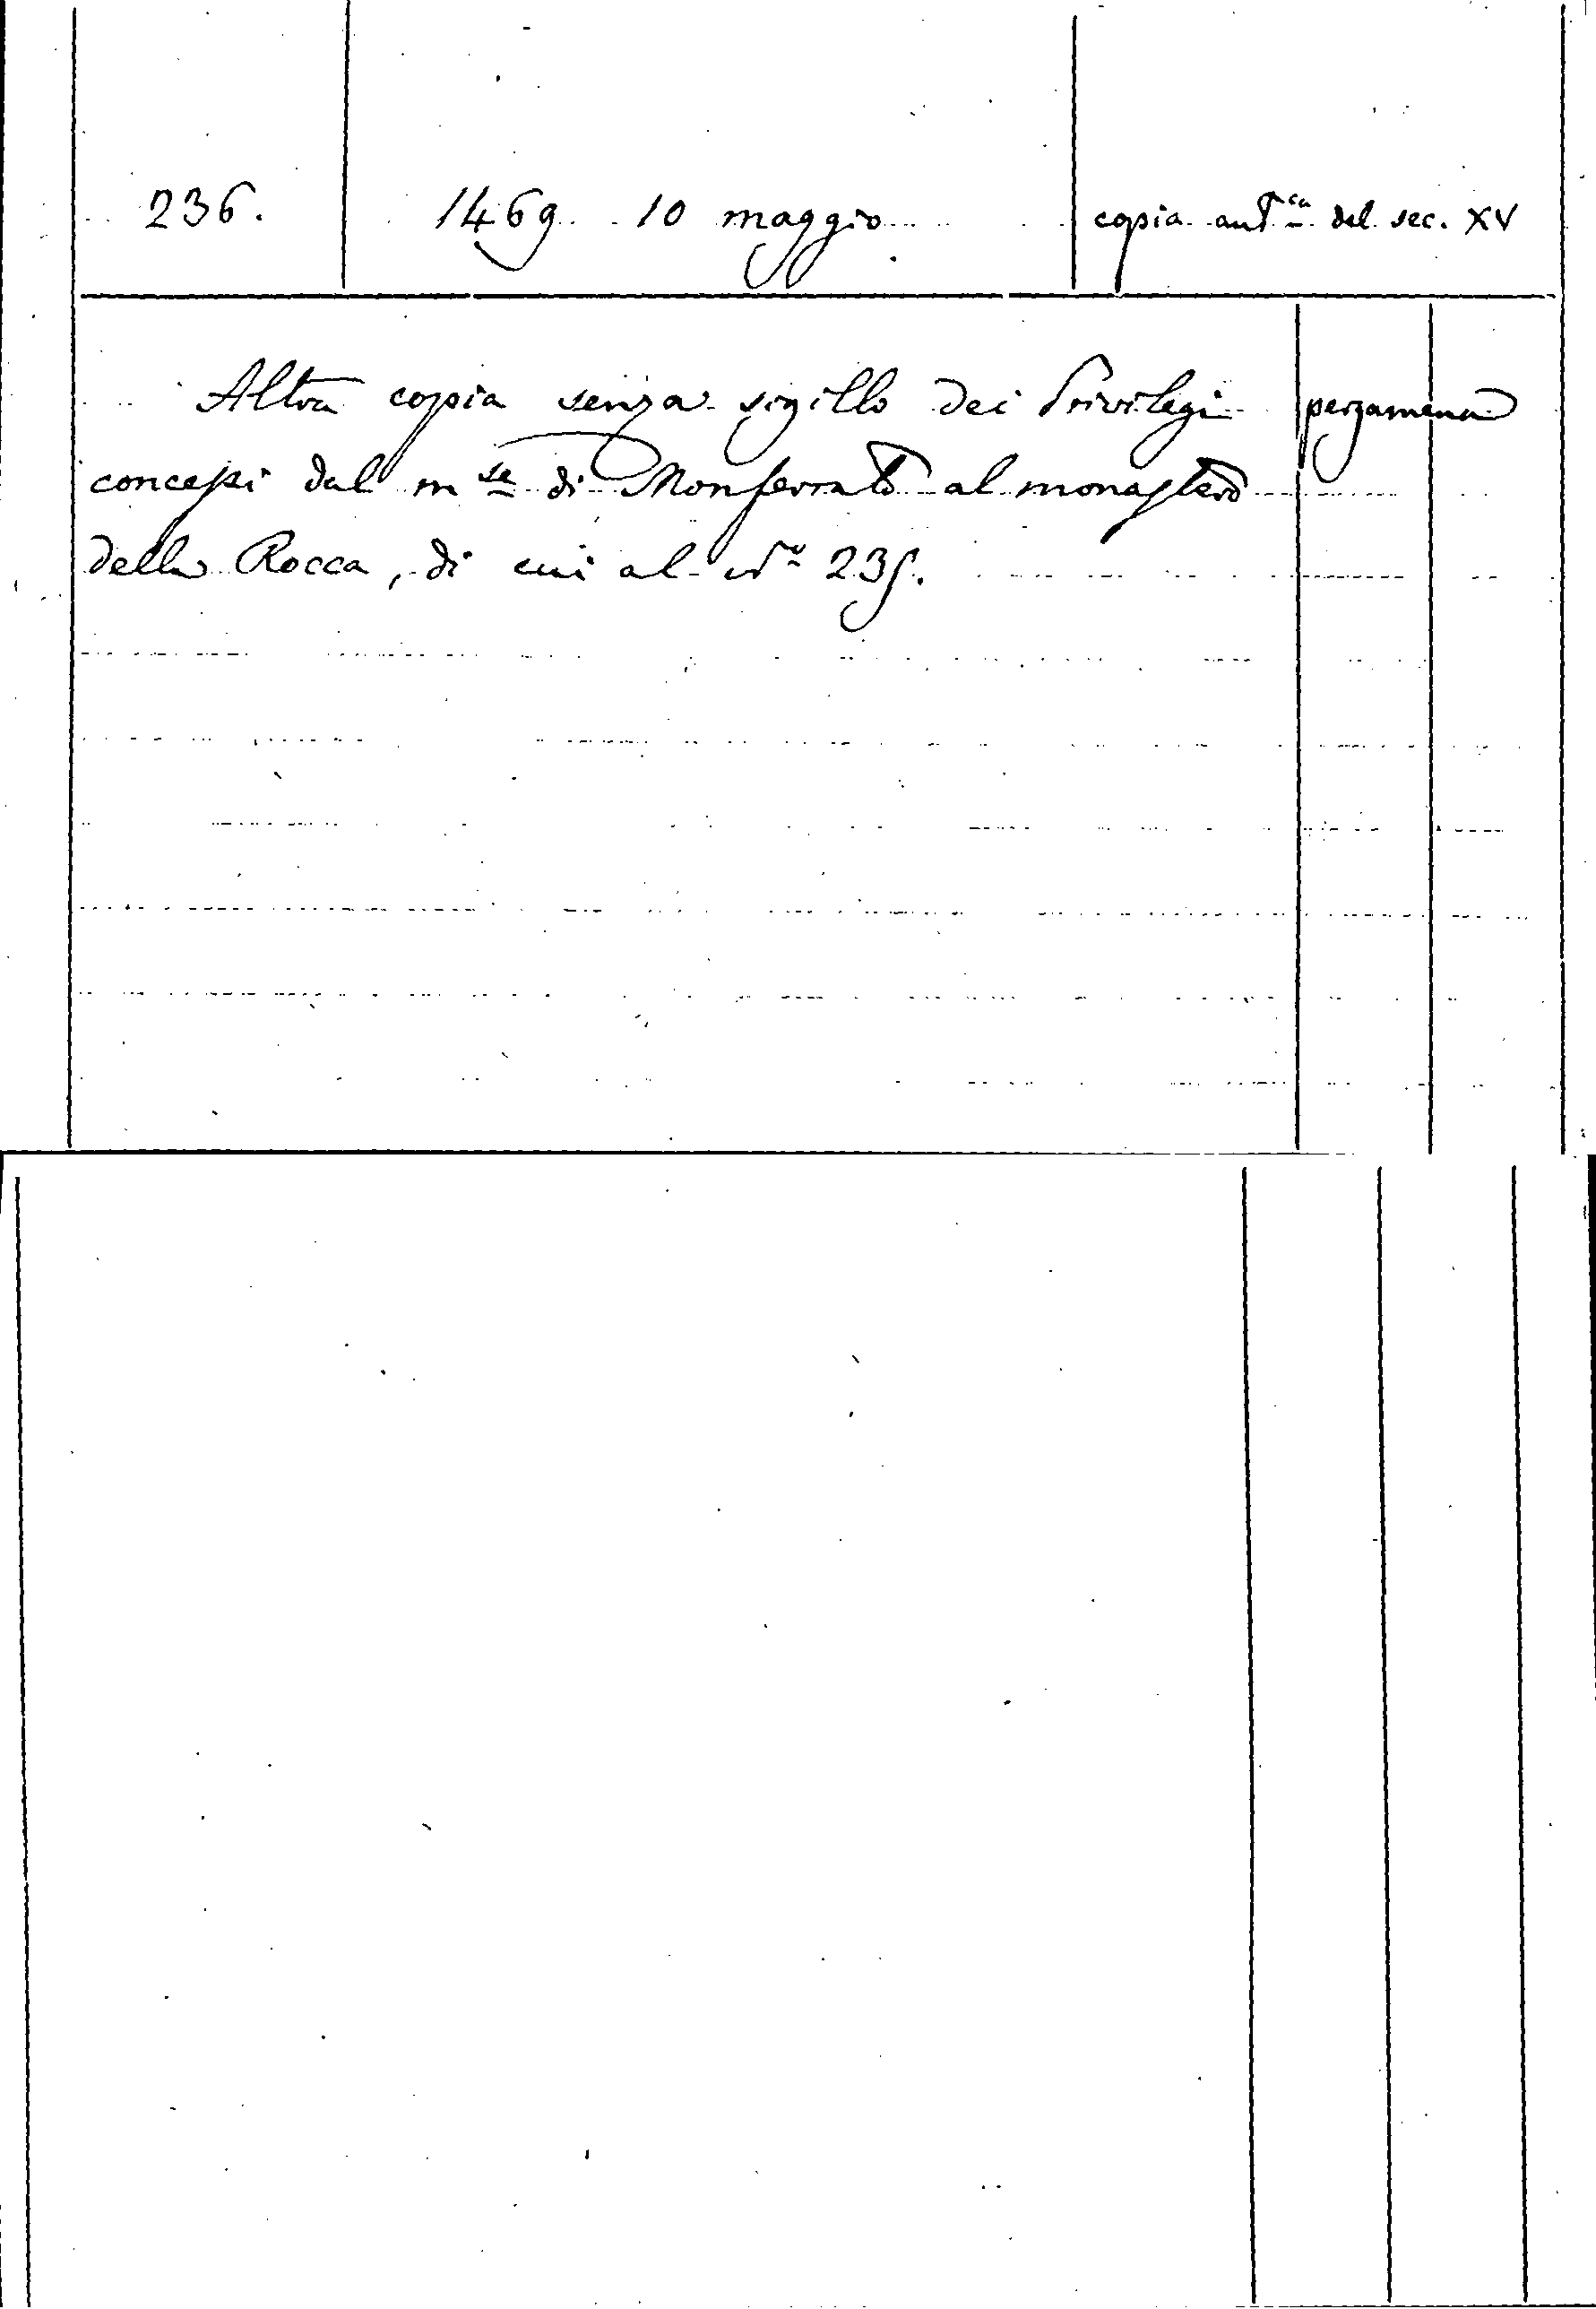 236. 1469 10 maggio copia aut.ca del sec. XV
Altra copia senza sigillo dei Privilegi pergamena
concessi dal m.se di Monferrato al monastero
della Rocca, di cui al n.o 235.